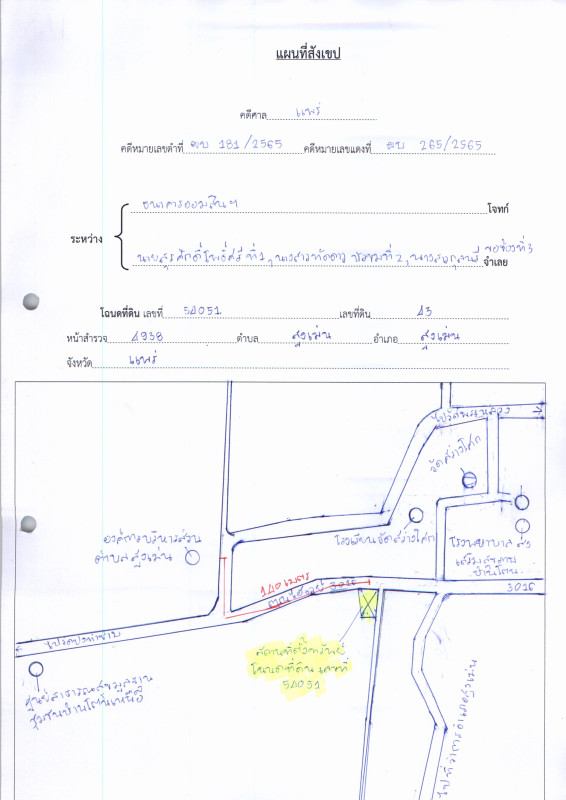 แผนที่สังเขป
คดีศาล แพร่
คดีหมายเลขดำที่ ผบ 181/2565 คดีหมายเลขแดงที่ ผบ 265/2565
ระหว่าง
ธนาคารออมสินฯ โจทก์
นายสุรศักดิ์ โพธิ์ศรี ที่ 1, นางสาวทัดดาว ที่ 2, ที่ 3 จำเลย
โฉนดที่ดิน เลขที่ 54051 เลขที่ดิน 43
หน้าสำรวจ 4938 ตำบล สูงเม่น อำเภอ สูงเม่น
จังหวัด แพร่
วัดสว่างโศก
องค์การบริหารส่วน
ตำบลสูงเม่น
โรงเรียนวัดสว่างโศก
โรงพยาบาลส่ง
เสริมสุขภาพ
140 เมตร
3016
3016
สถานที่ตั้งทรัพย์
โฉนดที่ดิน เลขที่
54051
ศูนย์สาธารณสุขมูลฐาน
ไปที่ว่าการอำเภอสูงเม่น